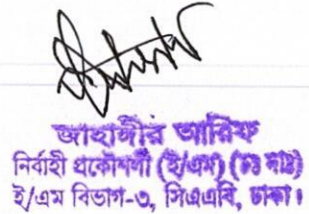 জাহাঙ্গীর আরিফ
নির্বাহী প্রকৌশলী (ই/এম) (চঃ দাঃ)
ই/এম বিভাগ-৩, সিএএবি, ঢাকা।